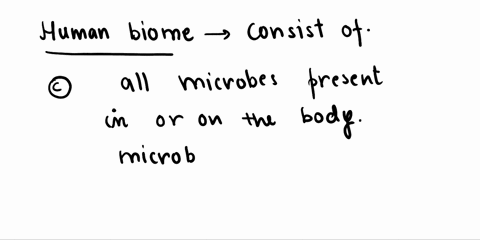 Human biome → Consist of.
ⓒ all microbes present
in or on the body.
microb